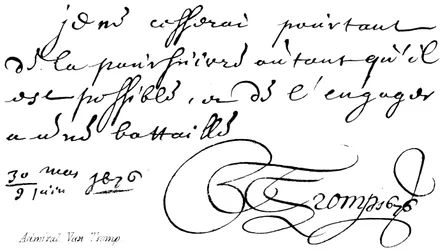 je ne cesserai pourtant
de la poursuivre autant qu'il
est possible, et de l'engager
a une battaille
30 may
9 juin 1676
CTromp 1676
Admiral Van Tromp.